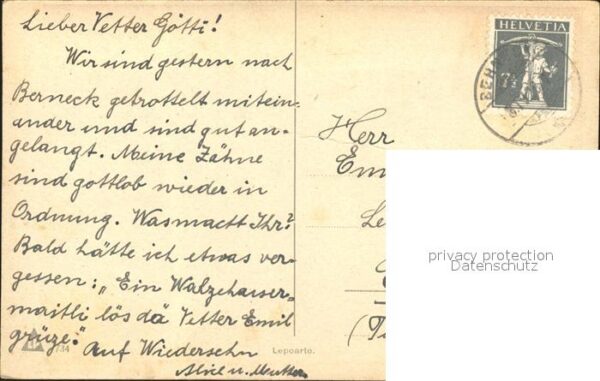 Lieber Vetter Götti!
Wir sind gestern nach
Berneck getrottelt mitein-
ander und sind gut an-
gelangt. Meine Zähne
sind gottlob wieder in
Ordnung. Was macht Ihr?
Bald hätte ich etwas ver-
gessen: „Ein Walzehauser-
maitli lös dä Vetter Emil
grüze."
Auf Wiedersehn
Alice u. Mutter.
734
Lepoarte.
HELVETIA
7½
Herr
Em
(T
privacy protection
Datenschutz